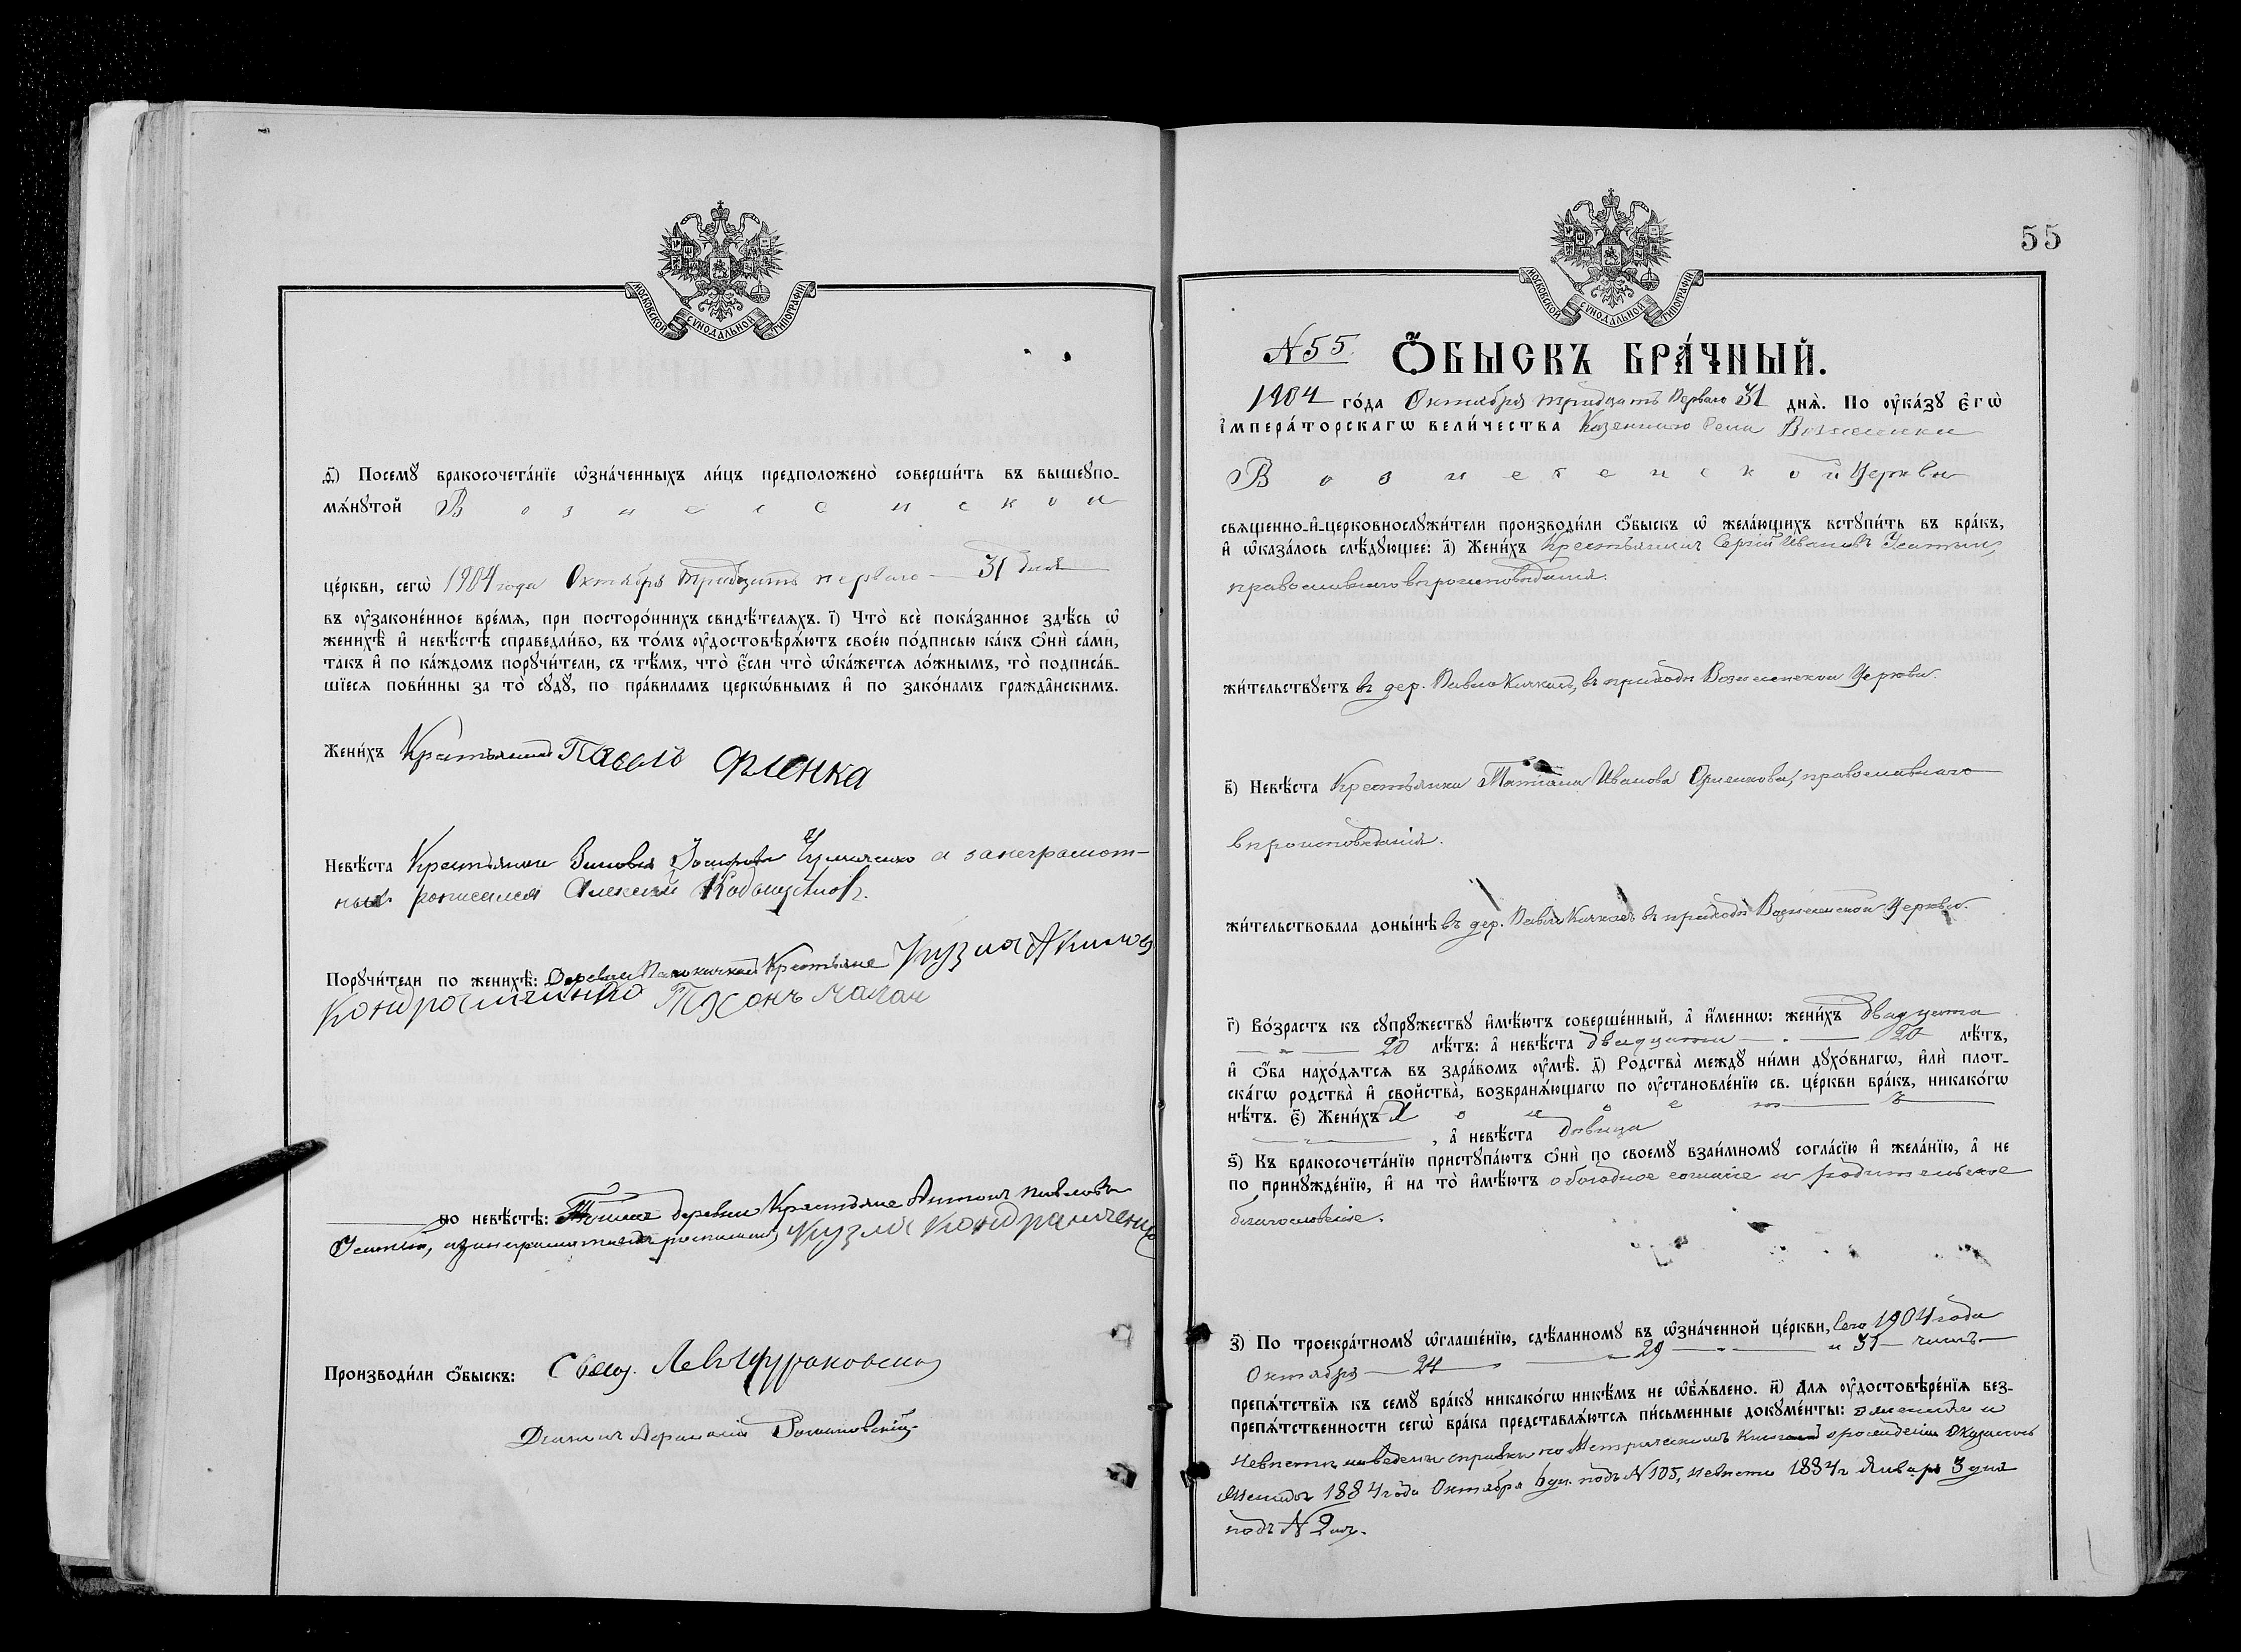 МОСКОВСКОЙ СУНОДАЛЬНОЙ ТИПОГРАФІИ
Ѳ҃) Посемꙋ̀ бракосочета́нїе ѡ҆зна́ченныхъ ли́цъ предположено̀ соверши́ть въ вышеꙋпо-
мѧ́нꙋтой Вознесенской
це́ркви, сегѡ̀ 1904 года Октября тридцать перваго 31 дня
въ ᲂу҆зако́ненное вре́мѧ, при посторо́ннихъ свидѣ́телѧхъ. і҃) Что̀ всѐ пока́занное здѣ́сь ѡ҆
женихѣ̀ и҆ невѣ́стѣ справедли́во, въ то́мъ ᲂу҆достовѣрѧ́ютъ свое́ю по́дписью ка́къ ѻ҆нѝ са́ми,
та́къ и҆ по ка́ждомъ порꙋчи́тели, съ тѣ́мъ, что̀ є҆́сли что̀ ѡ҆ка́жетсѧ ло́жнымъ, то̀ подписа́в-
шїесѧ пови́нны за то̀ сꙋдꙋ̀, по пра́виламъ церкѡ́внымъ и҆ по зако́намъ гражда̂нскимъ.
Жени́хъ Павелъ Фленка
Невѣ́ста Крестьянка а занеграмот-
росписался Алексей
Порꙋчи́тели по женихѣ̀: Деревни Крестьяне Кузма Акимов
Кондратченко Тихонъ
по невѣ́стѣ: деревни Крестьяне Антонъ Павловъ
Усатый, Кузма Кондратченко
Производи́ли ѻ҆́быскъ: Свящ. Левъ
Афанасій Романовскій
55
МОСКОВСКОЙ СУНОДАЛЬНОЙ ТИПОГРАФІИ
N 55. Ѻ҆́БЫСКЪ БРА́ЧНЫЙ.
1904 го́да Октября тридцать перваго 31 днѧ̀. По ᲂу҆ка́зꙋ є҆гѡ̀
і҆мпера́торскагѡ вели́чества Казеннаго села Вознесенки
Вознесенской Церкви
свѧще́нно-и҆-церковнослꙋжи́тели производи́ли ѻ҆́быскъ ѡ҆ жела́ющихъ встꙋпи́ть въ бра́къ,
и҆ ѡ҆каза́лось слѣ́дꙋющее: а҃) Жени́хъ Крестьянинъ Сергій Ивановъ Усатый,
православнаго вероисповеданія.
жи́тельствꙋетъ въ дер. Павло Кичкасъ, въ приходѣ Вознесенской Церкви.
в҃) Невѣ́ста Крестьянка Татіана Иванова православнаго
вероисповеданія.
жи́тельствовала доны́нѣ въ дер. Павло Кичкасъ въ приходѣ Вознесенской Церкви.
г҃) Во́зрастъ къ сꙋпрꙋ́жествꙋ и҆мѣ́ютъ соверше́нный, а҆ и҆́меннѡ: жени́хъ двадцати
20 лѣ́тъ: а҆ невѣ́ста двадцати 20 лѣ́тъ,
и҆ ѻ҆́ба нахо́дѧтсѧ въ здра́вомъ ᲂу҆мѣ̀. д҃) Родства̀ междꙋ̀ ни́ми дꙋхо́внагѡ, и҆лѝ плот-
ска́гѡ родства̀ и҆ сво́йства̀, возбранѧ́ющагѡ по ᲂу҆становле́нїю св. це́ркви бра́къ, никако́гѡ
нѣ́тъ. є҃) Жени́хъ Холостъ
, а҆ невѣ́ста девица
ѕ҃) Къ бракосочета́нїю пристꙋпа́ютъ ѻ҆нѝ по своемꙋ̀ взаи́мномꙋ согла́сїю и҆ жела́нїю, а҆ не
по принꙋжде́нїю, и҆ на то̀ и҆мѣ́ютъ обоюдное согласіе и родительское
благословеніе.
з҃) По троекра́тномꙋ ѡ҆глаше́нїю, сдѣ́ланномꙋ въ ѡ҆зна́ченной це́ркви, сего 1904 года
Октября 24 29 и 31 чиселъ
препѧ́тствїѧ къ семꙋ̀ бра́кꙋ никако́гѡ никѣ́мъ не ѡ҆б̾ѧ́влено. и҃) Длѧ ᲂу҆достовѣре́нїѧ без-
препѧ́тственности сегѡ̀ бра́ка представлѧ́ютсѧ пи́сьменные докꙋме́нты: о женихе и
невесте наведены справки по Метрическимъ книгамъ о рожденіи оказалось
Женихъ 1884 года Октября 6 дн. подъ N 105, невеста 1884 г Января 3 дня
подъ N 2мъ.